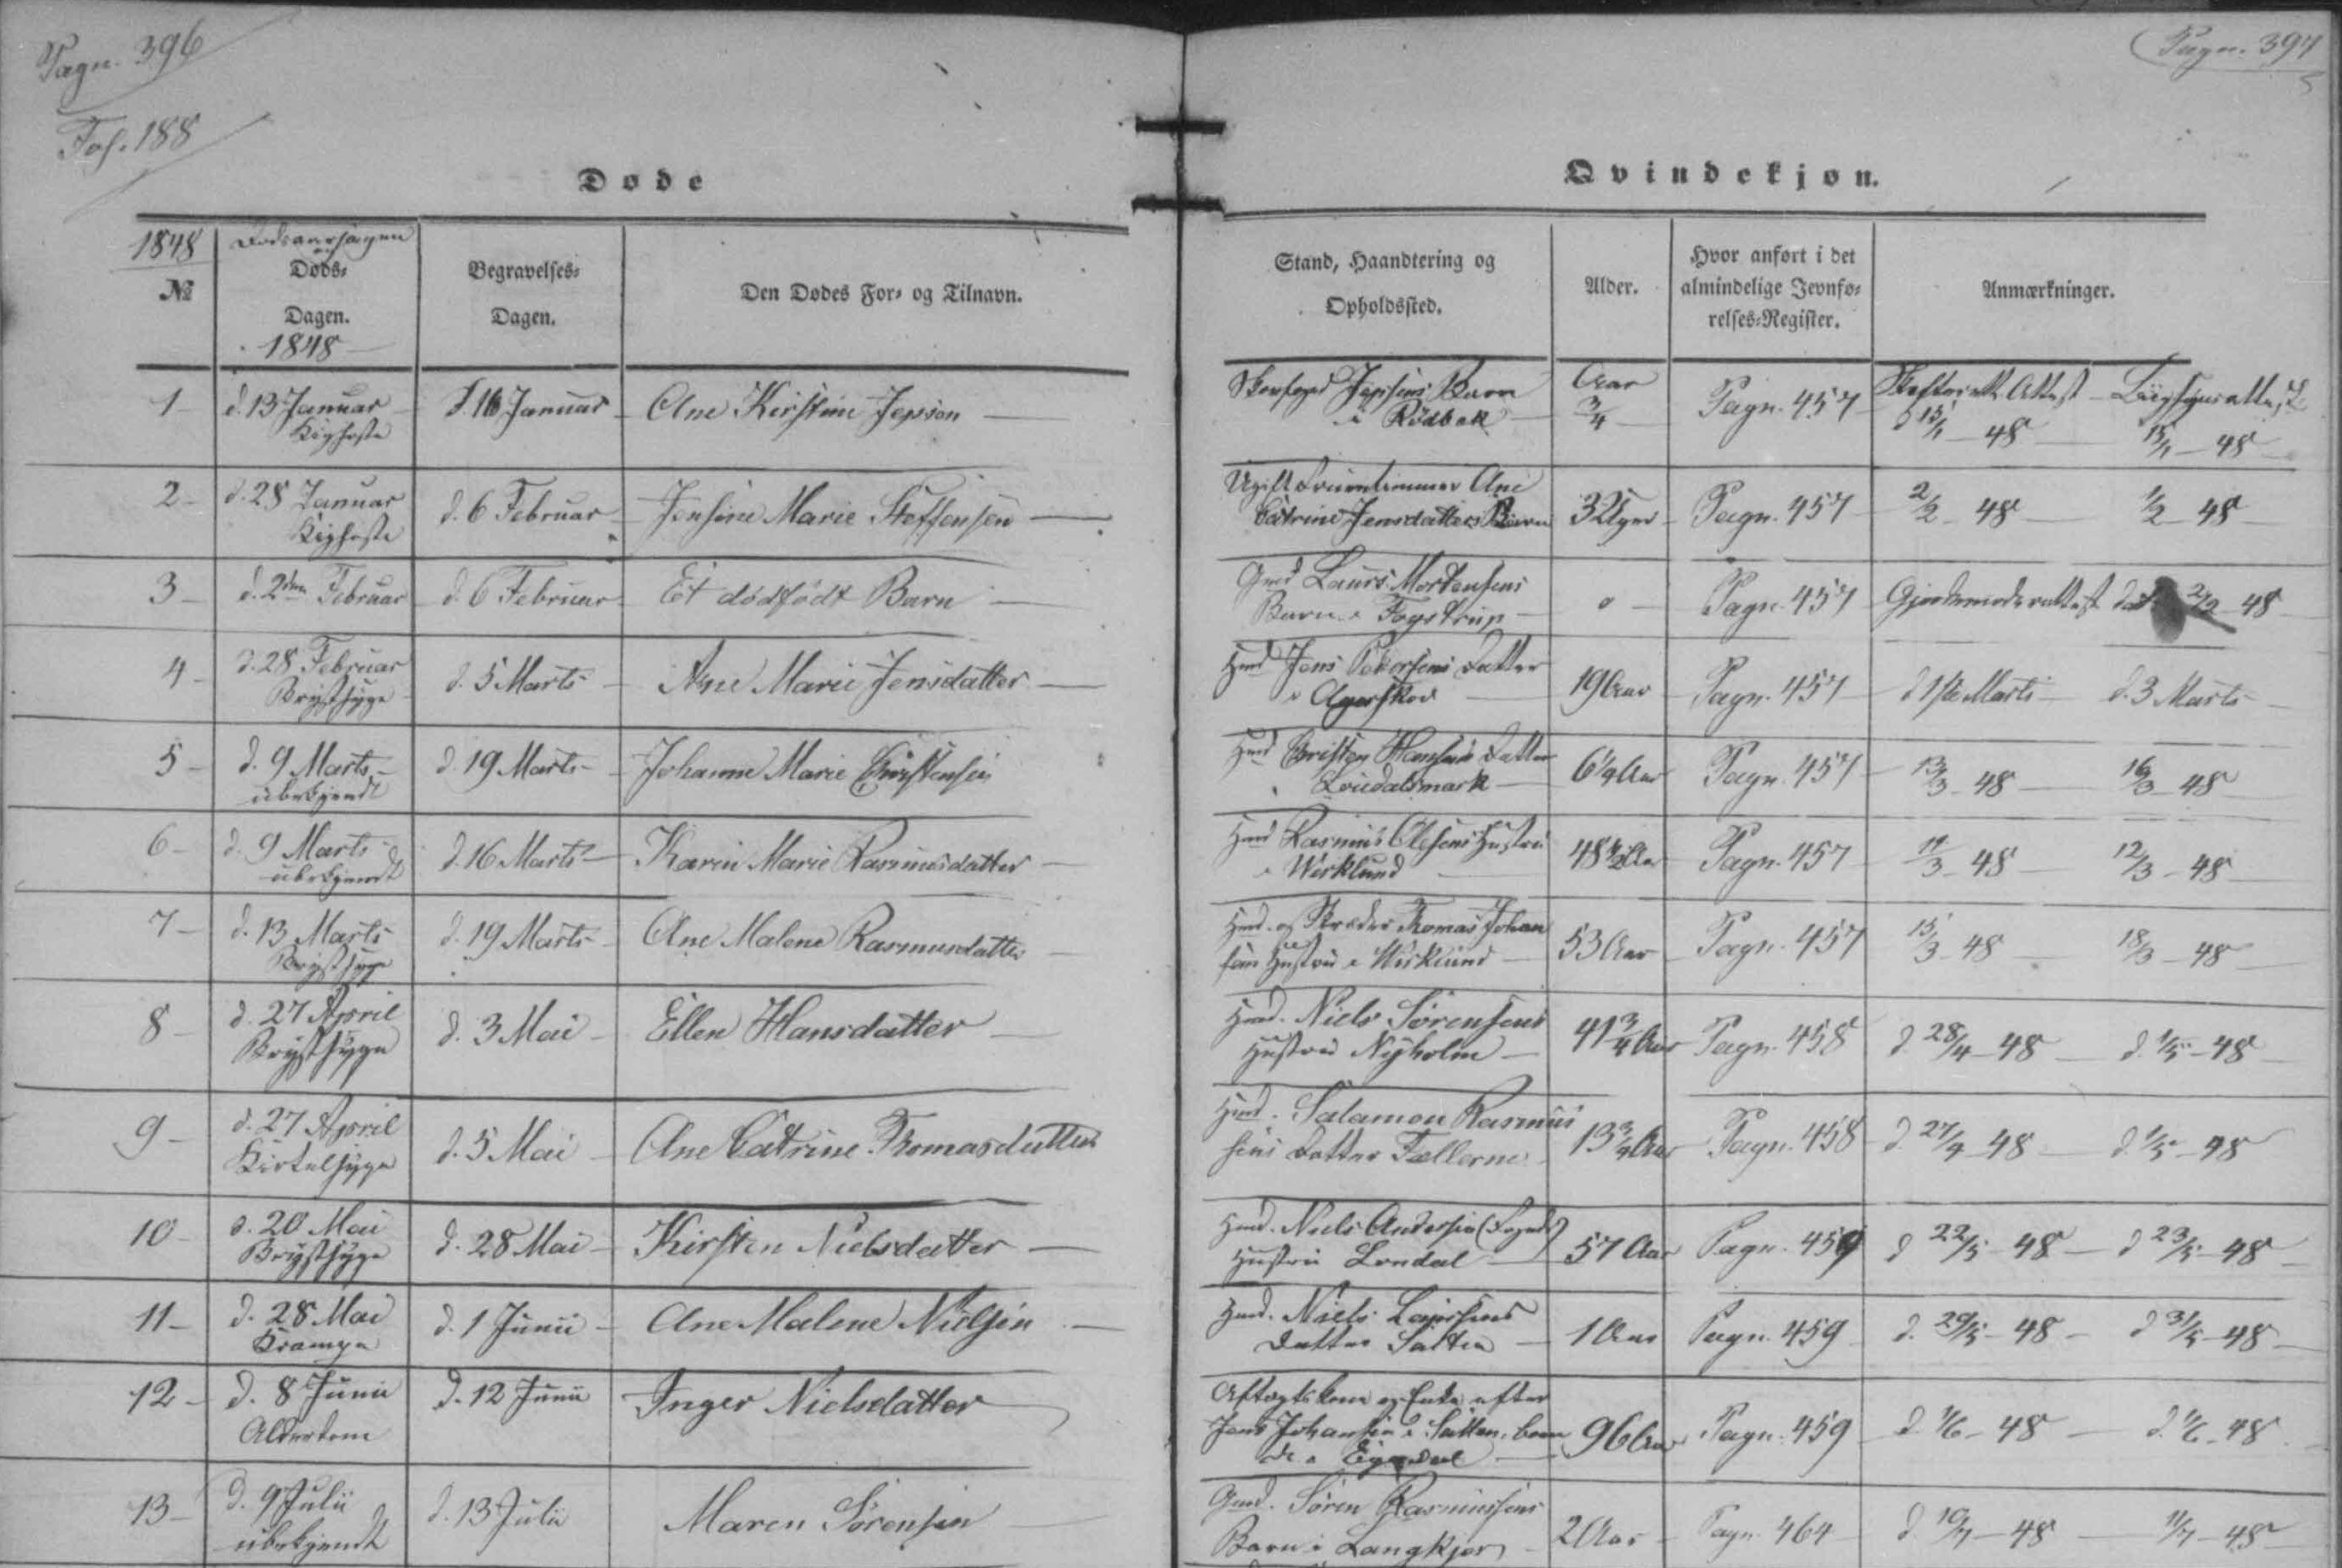 Pagn. 396
Fol. 188
Døde
1848
№
Dødsaarsagen
og
Døds-
Dagen.
1848
Begravelses-
Dagen.
Den Dødes For- og Tilnavn.
1
d. 13 Januar
Kighoste
d. 16 Januar
Ane Kirstine Jepsen
2
d. 28 Januar
Kighoste
d. 6 Februar
Jensine Marie Steffensen
3
d. 2den Februar
d. 6 Februar
Et dødfødt Barn
4
d. 28 Februar
Brystsyge
d. 5 Marts
Ane Marie Jensdatter
5
d. 9 Marts
ubekjendt
d. 19 Marts
Johanne Marie Christensen
6
d. 9 Marts
ubekjendt
d. 16 Marts
Karen Marie Rasmusdatter
7
d. 13 Marts
Brystsyge
d. 19 Marts
Ane Malene Rasmusdatter
8
d. 27 April
Brystsyge
d. 3 Mai
Ellen Hansdatter
9
d. 27 April
Kirtelsyge
d. 5 Mai
Ane Catrine Thomasdatter
10
d. 20 Mai
Brystsyge
d. 28 Mai
Kirsten Nielsdatter
11
d. 28 Mai
Krampe
d. 1 Junii
Ane Malene Nielsen
12
d. 8 Junii
Alderdom
d. 12 Junii
Inger Nielsdatter
13
d. 9 Julii
ubekjendt
d. 13 Julii
Maren Sørensen
Pagn. 397
Qvindekjøn.
Stand, Haandtering og
Opholdssted.
Alder.
Hvor anført i det
almindelige Jevnfø-
relses-Register.
Anmærkninger.
Jepsens Barn
i Rødbæk
Aar
3/4
Pagn. 457
Skifterets Attest Liigsynsattest
d 15/1 48 15/1 48
Ugift Fruentimmer Ane
Catrine Jensdatters Barn
32 Uger
Pagn. 457
2/2 48 1/2 48
Gmd Laurs Mortensens
Barn i Fogstrup
0
Pagn. 457
Gjordemoderattest dat 2/2 48
Hmd Jens Petersens Datter
i Agerskov
19 Aar
Pagn. 457
d 1ste Marts d. 3 Marts
Hmd Christen Hansens Datter
i Loudalsmark
6 1/4 Aar
Pagn. 457
13/3 48 16/3 48
Hmd Rasmus Olesens Hustru
i Wirklund
48 1/2 Aar
Pagn. 457
11/3 48 12/3 48
Hmd. og Skræder Thomas Johan
sens Hustru i Wirklund
53 Aar
Pagn. 457
15/3 48 18/3 48
Hmd. Niels Sørensens
Hustru Nyholm
41 3/4 Aar
Pagn. 458
d. 28/4 48 d. 1/5 48
Hmd. Salamon Rasmus
sens Datter Fællerne
13 3/4 Aar
Pagn. 458
d 27/4 48 d. 1/5 48
Hmd. Niels Andersen (Fogeds)
Hustru Londal
57 Aar
Pagn. 459
d 22/5 48 d 23/5 48
Hmd. Niels Laursens
Datter Satten
1 Aar
Pagn. 459
d. 29/5 48 d 31/5 48
Aftægtskone og Enke efter
Jens Johansen i Satten, boen
de i
96 Aar
Pagn. 459
48 48
Gmd. Søren Rasmussens
Barn i Langkjær
2 Aar
Pagn. 464
d. 10/7 48 11/7 48